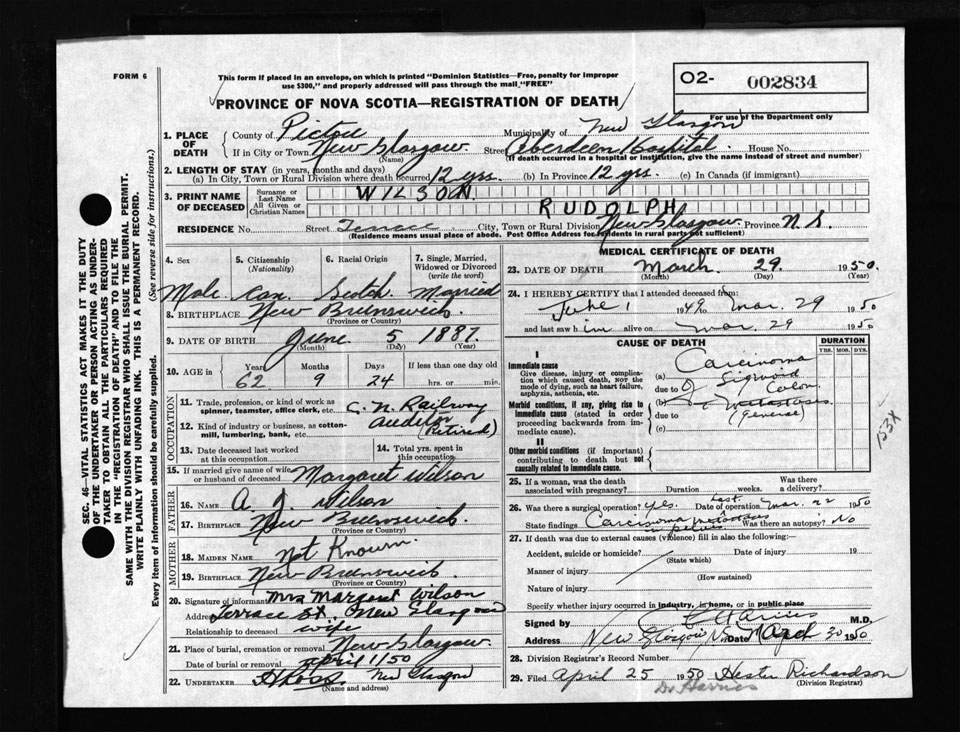 FORM 6
This form if placed in an envelope, on which is printed "Dominion Statistics—Free, penalty for improper
use $300," and properly addressed will pass through the mail "FREE"
O2- 002834
For use of the Department only
PROVINCE OF NOVA SCOTIA—REGISTRATION OF DEATH
SEC. 46—VITAL STATISTICS ACT MAKES IT THE DUTY
OF THE UNDERTAKER OR PERSON ACTING AS UNDER-
TAKER TO OBTAIN ALL THE PARTICULARS REQUIRED
IN THE "REGISTRATION OF DEATH" AND TO FILE THE
SAME WITH THE DIVISION REGISTRAR WHO SHALL ISSUE THE BURIAL PERMIT.
WRITE PLAINLY WITH UNFADING INK. THIS IS A PERMANENT RECORD.
Every item of information should be carefully supplied. (See reverse side for instructions.)
1. PLACE OF DEATH
County of Pictou Municipality of New Glasgow
If in City or Town New Glasgow (Name) Street Aberdeen Hospital House No.
(If death occurred in a hospital or institution, give the name instead of street and number)
2. LENGTH OF STAY (in years, months and days)
(a) In City, Town or Rural Division where death occurred 12 yrs. (b) In Province 12 yrs. (c) In Canada (if immigrant)
3. PRINT NAME OF DECEASED
Surname or Last Name WILSON
All Given or Christian Names RUDOLPH
RESIDENCE No. Street City, Town or Rural Division New Glasgow Province N.S.
(Residence means usual place of abode. Post Office Address for residents in rural parts not sufficient)
4. Sex 5. Citizenship (Nationality) 6. Racial Origin 7. Single, Married, Widowed or Divorced (write the word)
Male Can. Scotch Married
8. BIRTHPLACE New Brunswick
(Province or Country)
9. DATE OF BIRTH June 5 1887
(Month) (Day) (Year)
10. AGE in Years Months Days If less than one day
62 9 24 hrs. or min.
OCCUPATION
11. Trade, profession, or kind of work as spinner, teamster, office clerk, etc. C. N. Railway
12. Kind of industry or business, as cotton-mill, lumbering, bank, etc. (Retired)
13. Date deceased last worked at this occupation
14. Total yrs. spent in this occupation
15. If married give name of wife or husband of deceased Margaret Wilson
FATHER
16. NAME A J Wilson
17. BIRTHPLACE New Brunswick
(Province or Country)
MOTHER
18. MAIDEN NAME Not Known
19. BIRTHPLACE New Brunswick
(Province or Country)
20. Signature of informant Mrs Margaret Wilson
Address Terrace St. New Glasgow
Relationship to deceased wife
21. Place of burial, cremation or removal New Glasgow
Date of burial or removal april 1/50
22. UNDERTAKER New Glasgow
(Name and address)
MEDICAL CERTIFICATE OF DEATH
23. DATE OF DEATH March 29 1950
(Month) (Day) (Year)
24. I HEREBY CERTIFY that I attended deceased from:
June 1 1949 to mar. 29 1950
and last saw him alive on mar. 29 1950
CAUSE OF DEATH DURATION
YRS. MOS. DYS.
I
Immediate cause
Give disease, injury or complication which caused death, NOT the mode of dying, such as heart failure, asphyxia, asthenia, etc.
(a) Carcinoma
due to Sigmoid Colon
Morbid conditions, if any, giving rise to immediate cause (stated in order proceeding backwards from immediate cause).
(b) Metastases
due to (general)
(c)
II
Other morbid conditions (if important) contributing to death but not causally related to immediate cause.
153X
25. If a woman, was the death associated with pregnancy? Duration weeks. Was there a delivery?
26. Was there a surgical operation? Yes. Date of last operation mar. 22 1950
State findings Carcinoma metastases in pelvis. Was there an autopsy? No
27. If death was due to external causes (violence) fill in also the following:—
Accident, suicide or homicide? Date of injury 19
(State which)
Manner of injury
(How sustained)
Nature of injury
Specify whether injury occurred in industry, in home, or in public place
Signed by M.D.
Address New Glasgow N.S. Date March 30 1950
28. Division Registrar's Record Number
29. Filed April 25 1950 Hester Richardson
(Division Registrar)